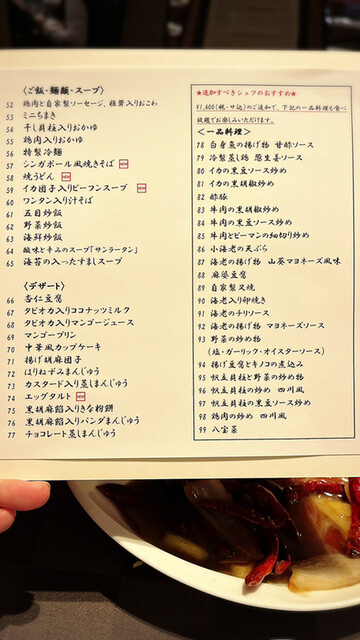 〈ご飯・麺類・スープ〉
52 鶏肉と自家製ソーセージ、根茸入りおこわ
53 ミニちまき
54 干し貝柱入りおかゆ
55 鶏肉入りおかゆ
56 特製冷麺
57 シンガポール風焼きそば NEW
58 焼うどん NEW
59 イカ団子入りビーフンスープ NEW
60 ワンタン入り汁そば
61 五目炒飯
62 野菜炒飯
63 海鮮炒飯
64 酸味と辛みのスープ「サンラータン」
65 海苔の入ったすましスープ
〈デザート〉
66 杏仁豆腐
67 タピオカ入りココナッツミルク
68 タピオカ入りマンゴージュース
69 マンゴープリン
70 中華風カップケーキ
71 揚げ胡麻団子
72 はりねずみまんじゅう
73 カスタード入り蒸しまんじゅう
74 エッグタルト NEW
75 黒胡麻餡入りきな粉餅
76 黒胡麻餡入りパンダまんじゅう
77 チョコレート蒸しまんじゅう
★追加すべきシェフのおすすめ★
¥1,600(税・サ込)のご追加で、下記の一品料理も食べ
放題でお楽しみいただけます。
〈一品料理〉
78 白身魚の揚げ物 甘酢ソース
79 冷製蒸し鶏 葱生姜ソース
80 イカの黒豆ソース炒め
81 イカの黒胡椒炒め
82 酢豚
83 牛肉の黒胡椒炒め
84 牛肉の黒豆ソース炒め
85 牛肉とピーマンの細切り炒め
86 小海老の天ぷら
87 海老の揚げ物 山葵マヨネーズ風味
88 麻婆豆腐
89 自家製叉焼
90 海老入り卵焼き
91 海老のチリソース
92 海老の揚げ物 マヨネーズソース
93 野菜の炒め物
(塩・ガーリック・オイスターソース)
94 揚げ豆腐とキノコの煮込み
95 帆立貝柱と野菜の炒め物
96 帆立貝柱の炒め 四川風
97 帆立貝柱の黒豆ソース炒め
98 鶏肉の炒め 四川風
99 八宝菜